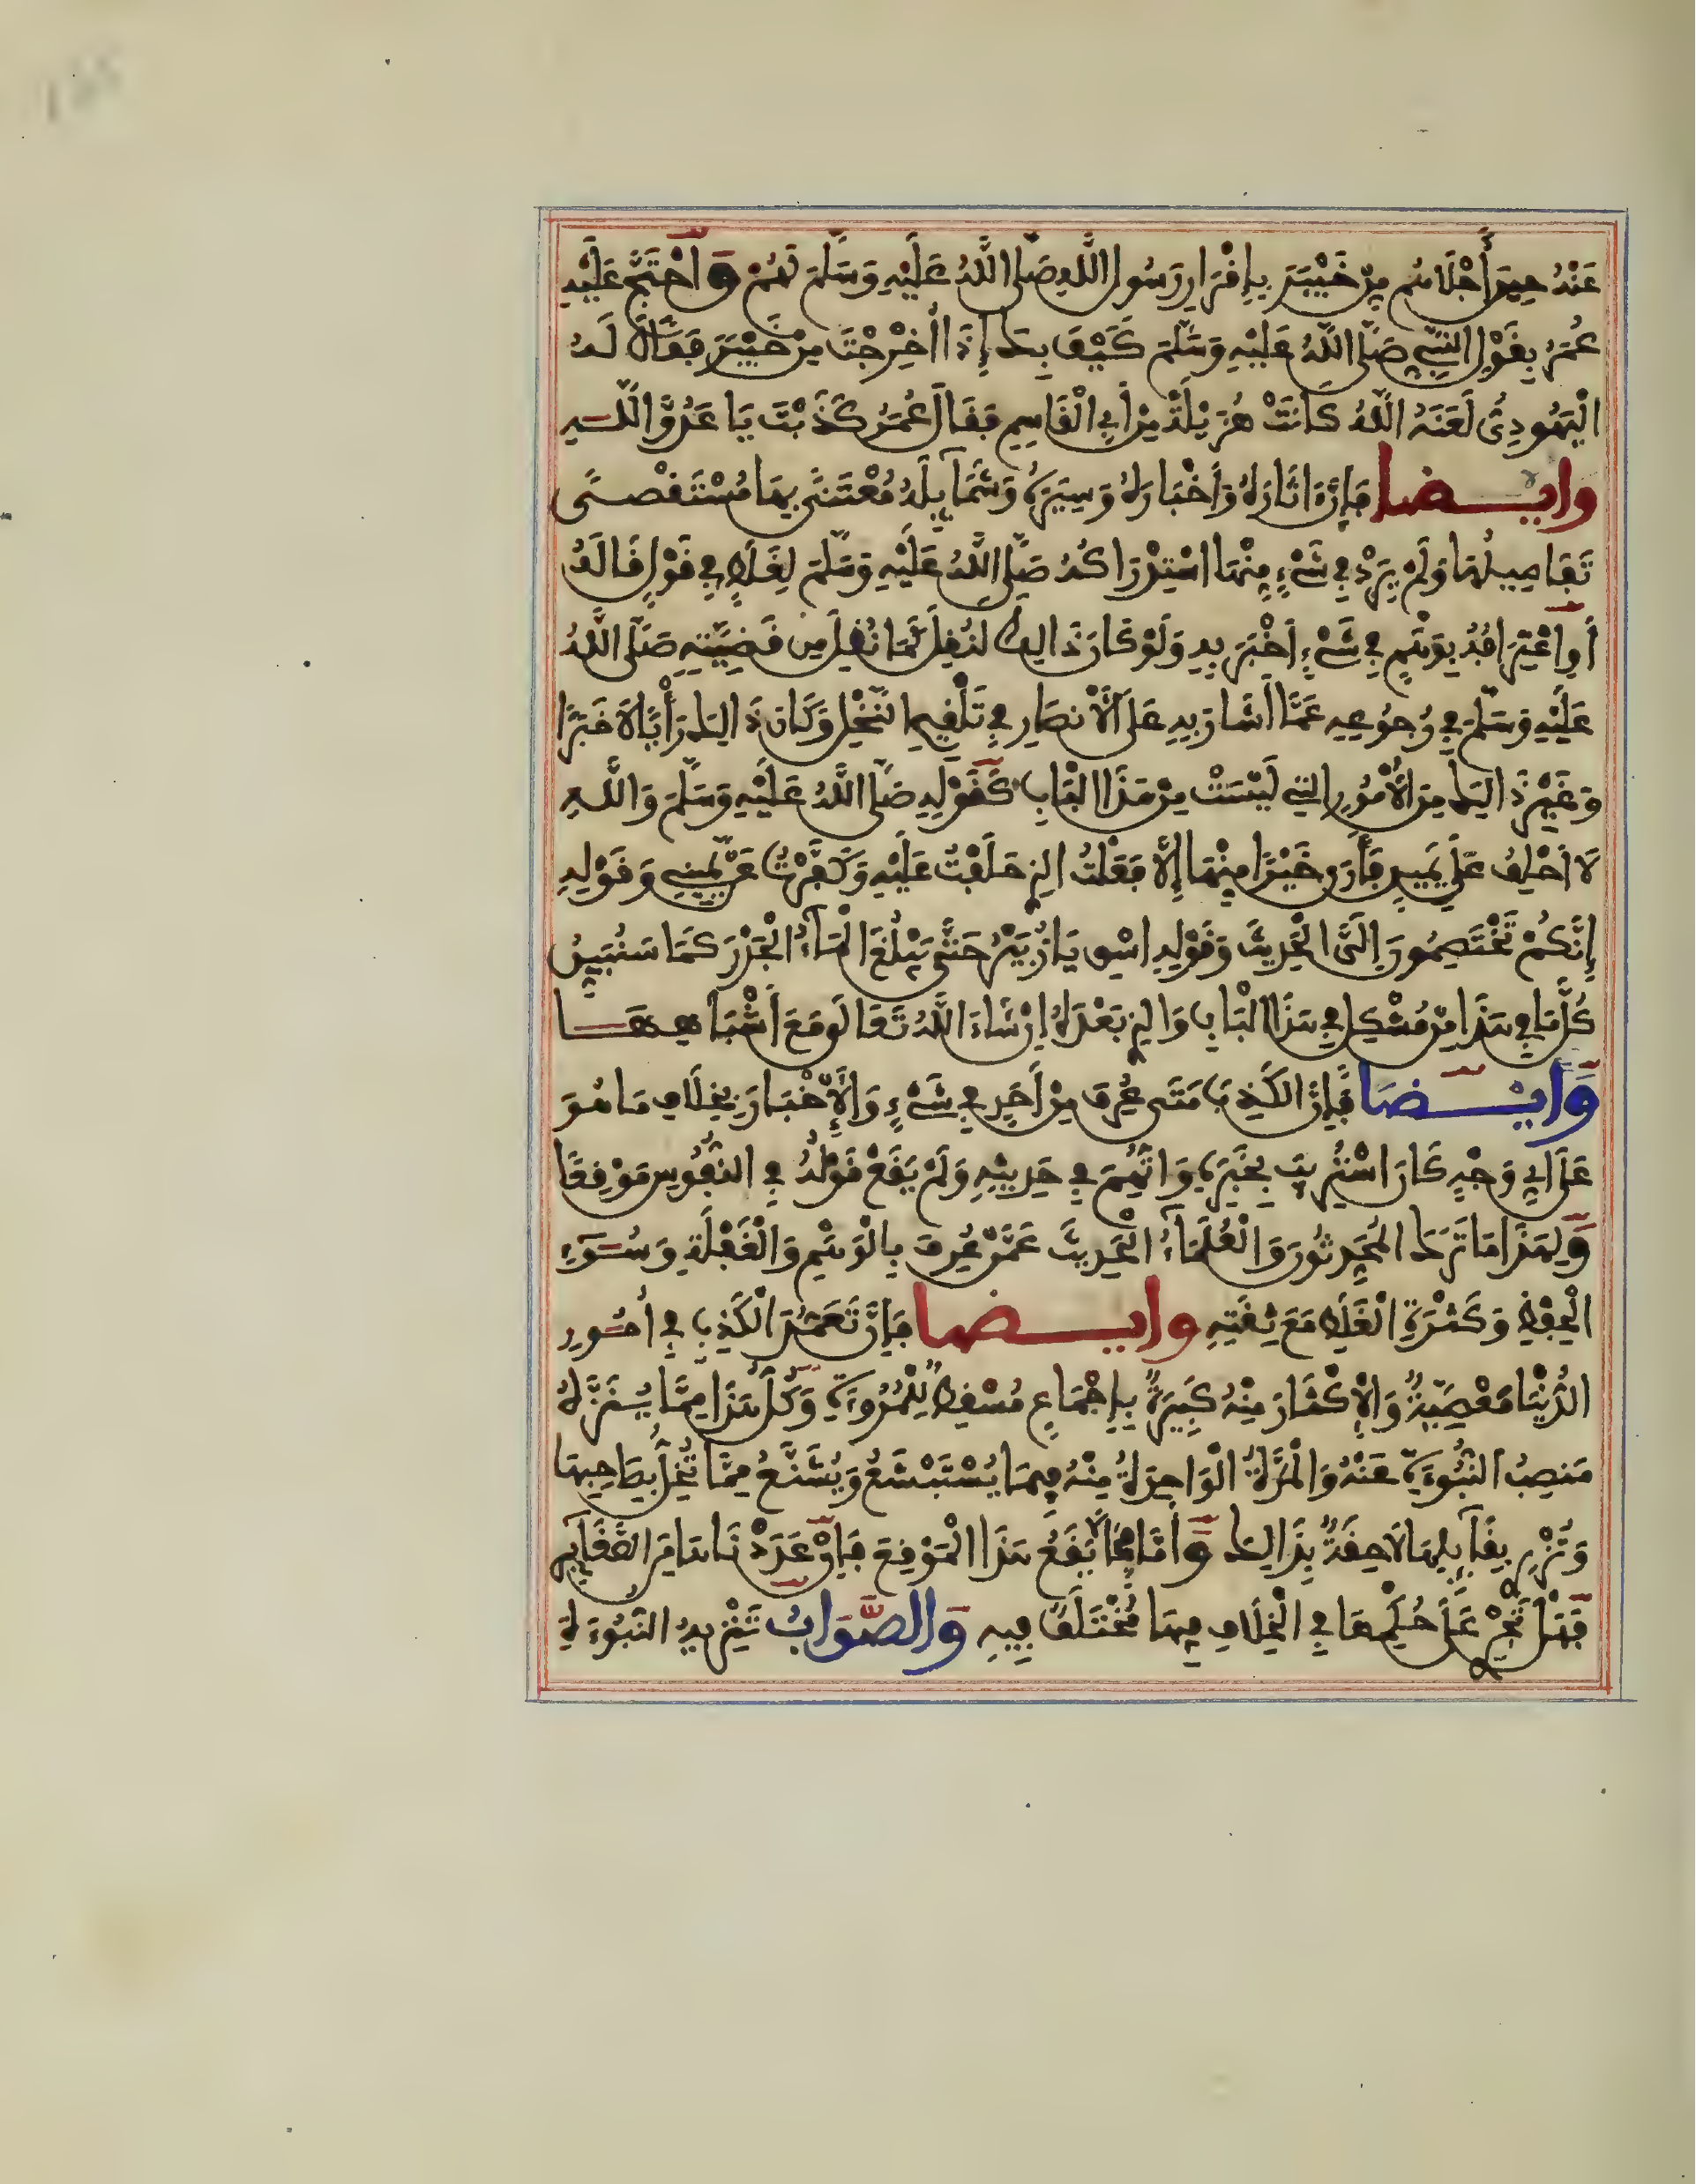 عَنْهُ حِينَ أَجْلَاهُم مِنْ خَيْبَرَ بِإِقْرَارِ رَسُولِ اللَّهِ صَلَّى اللَّهُ عَلَيْهِ وَسَلَّمَ لَهُمْ وَاحْتَجَّ عَلَيْهِ
عُمَرُ بِقَوْلِ النَّبِيِّ صَلَّى اللَّهُ عَلَيْهِ وَسَلَّمَ كَيْفَ بِكَ إِذَا أُخْرِجْتَ مِنْ خَيْبَرَ فَقَالَ لَهُ
الْيَهُودِيُّ لَعَنَهُ اللَّهُ كَانَتْ هُزَيْلَةً مِنْ أَبِي الْقَاسِمِ فَقَالَ عُمَرُ كَذَبْتَ يَا عَدُوَّ اللَّهِ
وايضا فَإِنَّ ءَاثَارَهُ وَأَخْبَارَهُ وَسِيَرَهُ وَشَمَآئِلَهُ مُعْتَنًى بِهَا مُسْتَقْصًى
تَفَاصِيلُهَا وَلَمْ يَرِدْ فِي شَيْءٍ مِنْهَا اسْتِدْرَاكُهُ صَلَّى اللَّهُ عَلَيْهِ وَسَلَّمَ لِغَلَطٍ فِي قَوْلٍ قَالَهُ
أَوِ اعْتِرَافُهُ بِوَهْمٍ فِي شَيْءٍ أَخْبَرَ بِهِ وَلَوْ كَانَ ذَالِكَ لَنُقِلَ كَمَا نُقِلَ مِن قَضِيَّتِهِ صَلَّى اللَّهُ
عَلَيْهِ وَسَلَّمَ فِي رُجُوعِهِ عَمَّا أَشَارَ بِهِ عَلَى الْأَنصَارِ فِي تَلْقِيحِ النَّخْلِ وَكَانَ ذَالِكَ رَأْيًا لَا خَبَرًا
وَغَيْرِ ذَالِكَ مِنَ الْأُمُورِ التِي لَيْسَتْ مِنْ هَذَا الْبَابِ كَقَوْلِهِ صَلَّى اللَّهُ عَلَيْهِ وَسَلَّمَ وَاللَّهِ
لَا أَحْلِفُ عَلَى يَمِينٍ فَأَرَى خَيْرًا مِنْهَا إِلَّا فَعَلْتُ الذِي حَلَفْتُ عَلَيْهِ وَكَفَّرْتُ عَنْ يَمِينِي وَقَوْلِهِ
إِنَّكُمْ تَخْتَصِمُونَ إِلَيَّ الْحَدِيثَ وَقَوْلِهِ اسْقِ يَا زُبَيْرُ حَتَّى يَبْلُغَ الْمَآءُ الْجَدْرَ كَمَا سَنُبَيِّنُ
كُلَّ مَا فِي هَذَا مِنْ مُشْكِلٍ فِي هَذَا الْبَابِ وَالذِي بَعْدَهُ إِنْ شَاءَ اللَّهُ تَعَالَى مَعَ أَشْبَاهِهَا
وَأَيْضًا فَإِنَّ الْكَذِبَ مَتَى عُرِفَ مِنْ أَحَدٍ فِي شَيْءٍ وَالْإِخْبَارَ بِخِلَافِ مَا هُوَ
عَلَى أَيِّ وَجْهٍ كَانَ اسْتُرِيبَ بِخَبَرِهِ وَاتُّهِمَ فِي حَدِيثِهِ وَلَمْ يَقَعْ قَوْلُهُ فِي النُّفُوسِ مَوْقِعًا
وَلِهَذَا مَا تَرَكَ الْمُحَدِّثُونَ وَالْعُلَمَآءُ الْحَدِيثَ عَمَّنْ عُرِفَ بِالْوَهْمِ وَالْغَفْلَةِ وَسُوءِ
الْحِفْظِ وَكَثْرَةِ الْغَلَطِ مَعَ ثِقَتِهِ وايضا فَإِنَّ تَعَمُّدَ الْكَذِبِ فِي أُمُورِ
الدُّنْيَا مَعْصِيَةٌ وَالْإِكْثَارَ مِنْهُ كَبِيرَةٌ بِإِجْمَاعٍ مُسْقِطٌ لِلْمُرُوءَةِ وَكُلُّ هَذَا مِمَّا يُنَزَّهُ
مَنصِبُ النُّبُوءَةِ عَنْهُ وَالْمَرَّةُ الْوَاحِدَةُ مِنْهُ فِيمَا يُسْتَبْشَعُ وَيُشَنَّعُ مِمَّا تُخِلُّ بِصَاحِبِهَا
وَتُزْرِي بِقَآئِلِهَا لَاحِقَةٌ بِذَالِكَ وَأَمَّا فِيمَا لَا يَقَعُ هَذَا الْمَوْقِعَ فَإِنْ عَدَدْنَاهَا مِنَ الصَّغَآئِرِ
فَهَلْ تَجْرِي عَلَى حُكْمِهَا فِي الْخِلَافِ فِيهَا مُخْتَلَفٌ فِيهِ وَالصَّوَابُ تَنْزِيهُ النُّبُوءَةِ